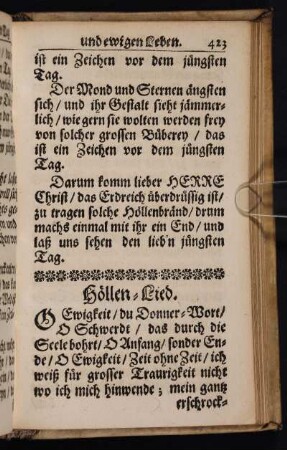 und ewigen Leben. 423
ist ein Zeichen vor dem jüngsten
Tag.
Der Mond und Sternen ängsten
sich / und ihr Gestalt sieht jämmer-
lich / wie gern sie wolten werden frey
von solcher grossen Büberey / das
ist ein Zeichen vor dem jüngsten
Tag.
Darum komm lieber HERRE
Christ / das Erdreich überdrüssig ist /
zu tragen solche Höllenbränd / drum
machs einmal mit ihr ein End / und
laß uns sehen den lieb'n jüngsten
Tag.
Höllen-Lied.
O Ewigkeit / du Donner-Wort /
O Schwerdt / das durch die
Seele bohrt / O Anfang / sonder En-
de / O Ewigkeit / Zeit ohne Zeit / ich
weiß für grosser Traurigkeit nicht
wo ich mich hinwende ; mein gantz
erschrock-